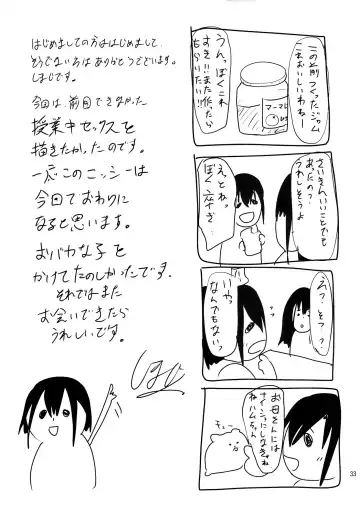 はじめましての方ははじめまして、
そうでない方はありがとうございます。
しまじです。
今回は、前回できなかった
授業中セックスを
描きたかったのです。
一応このニッシーは
今日でおわりに
なると思います。
おバカな子を
かけてたのしかったです。
それではまた
お会いできたら
うれしいです。
この前つくったジャム
これおいしいわねー
うん、ぼくこれ
すき!!また作ったら
ちょうだい!!
さいきんいいことでも
あったの?
うれしそうよ
えっとね。
ぼく今さ…
ん?そう?
いや、
なんでもない
お母さんには
ナイショにしなきゃね
ねハムちゃん
チュー
33